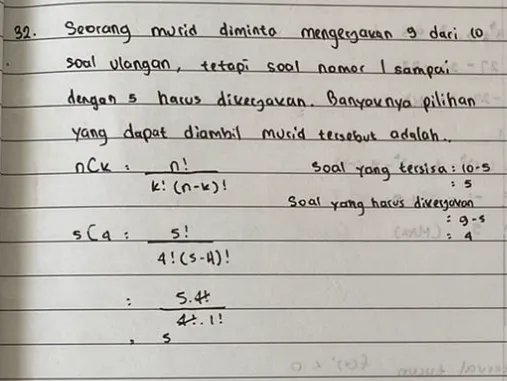 32. Seorang murid diminta mengerjakan 9 dari 10
soal ulangan, tetapi soal nomor 1 sampai
dengan 5 harus dikerjakan. Banyaknya pilihan
yang dapat diambil murid tersebut adalah..
nCk : n! / k! (n-k)!
Soal yang tersisa : 10-5
: 5
Soal yang harus dikerjakan
: 9-5
: 4
5C4 : 5! / 4! (5-4)!
: 5.4! / 4!.1!
, 5